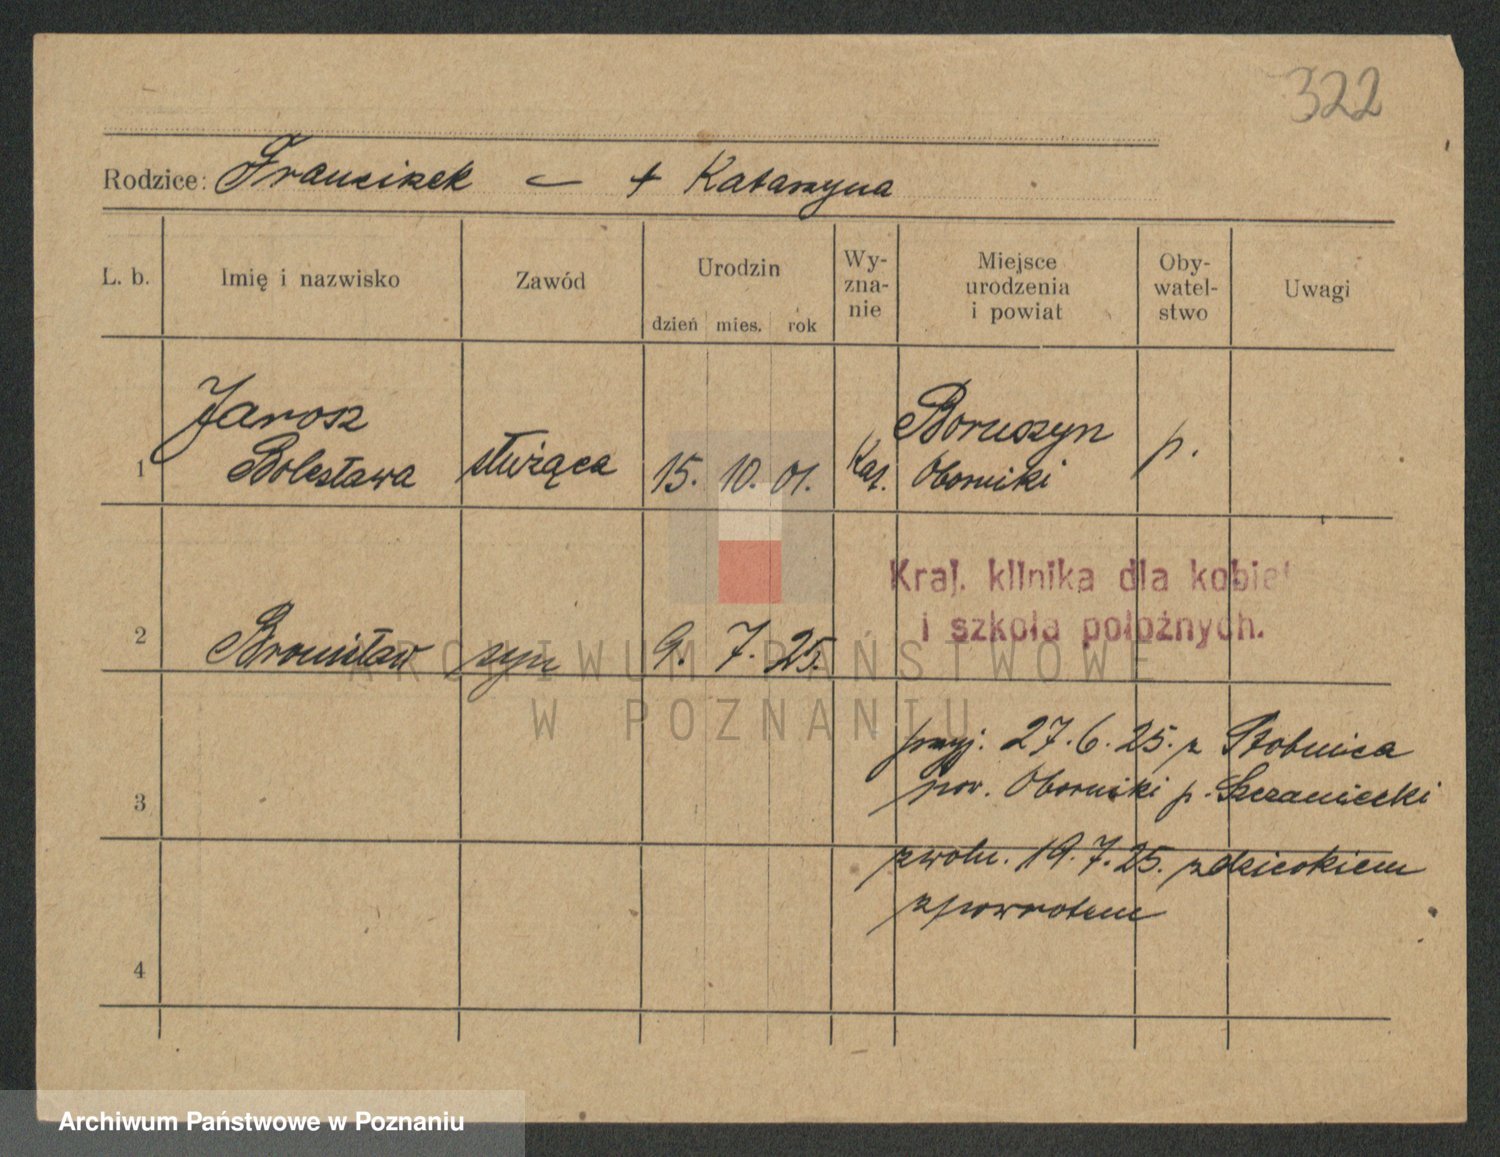 322
Rodzice: Franciszek — + Katarzyna
L. b. Imię i nazwisko Zawód Urodzin dzień mies. rok Wy-zna-nie Miejsce urodzenia i powiat Oby-watel-stwo Uwagi
Jarosz Boruszyn
1 Bolesława służąca 15. 10. 01. Kat. Oborniki p.
Kraj. klinika dla kobiet
i szkoła położnych.
2 Bronisław syn 9. 7. 25.
ARCHIWUM PAŃSTWOWE
W POZNANIU
przyj. 27.6.25. z Stobnica
3 pow. Oborniki p. Szczaniecki
zwoln. 19.7.25. z dzieckiem
z powrotem
4
Archiwum Państwowe w Poznaniu